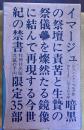 イマジュ 暗黒
の祭壇に責苦と贄
祭儀を燦然たる鏡像
に結んで再現する今世
紀の禁書 限定35部